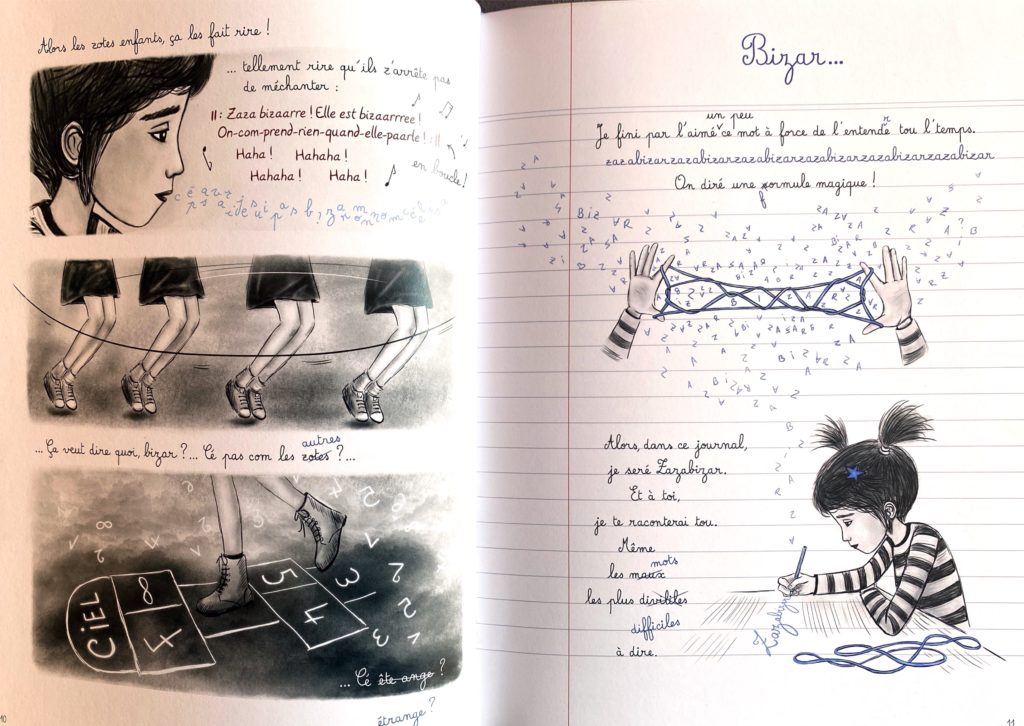 Alors les zotes enfants, ça les fait rire !
... tellement rire qu'ils z'arrête pas
de méchanter :
||: Zaza bizaarre ! Elle est bizaarrree !
On-com-prend-rien-quand-elle-paarle ! :||
Haha ! Hahaha !
Hahaha ! Haha !
en boucle !
... Ça veut dire quoi, bizar ?... Cé pas com les zotes ?...
autres
CIEL
8
4
5
4
3
... Cé ête ange ?
étrange ?
10
Bizar...
un peu
Je fini par l'aimé ce mot à force de l'entende tou l'temps.
r
zazabizarzazabizarzazabizarzazabizarzazabizarzazabizar
On diré une formule magique !
f
Alors, dans ce journal,
je seré Zazabizar.
Et à toi,
je te raconterai tou.
Même
mots
les maux
les plus divibiles
difficiles
à dire.
Zazabizar
11